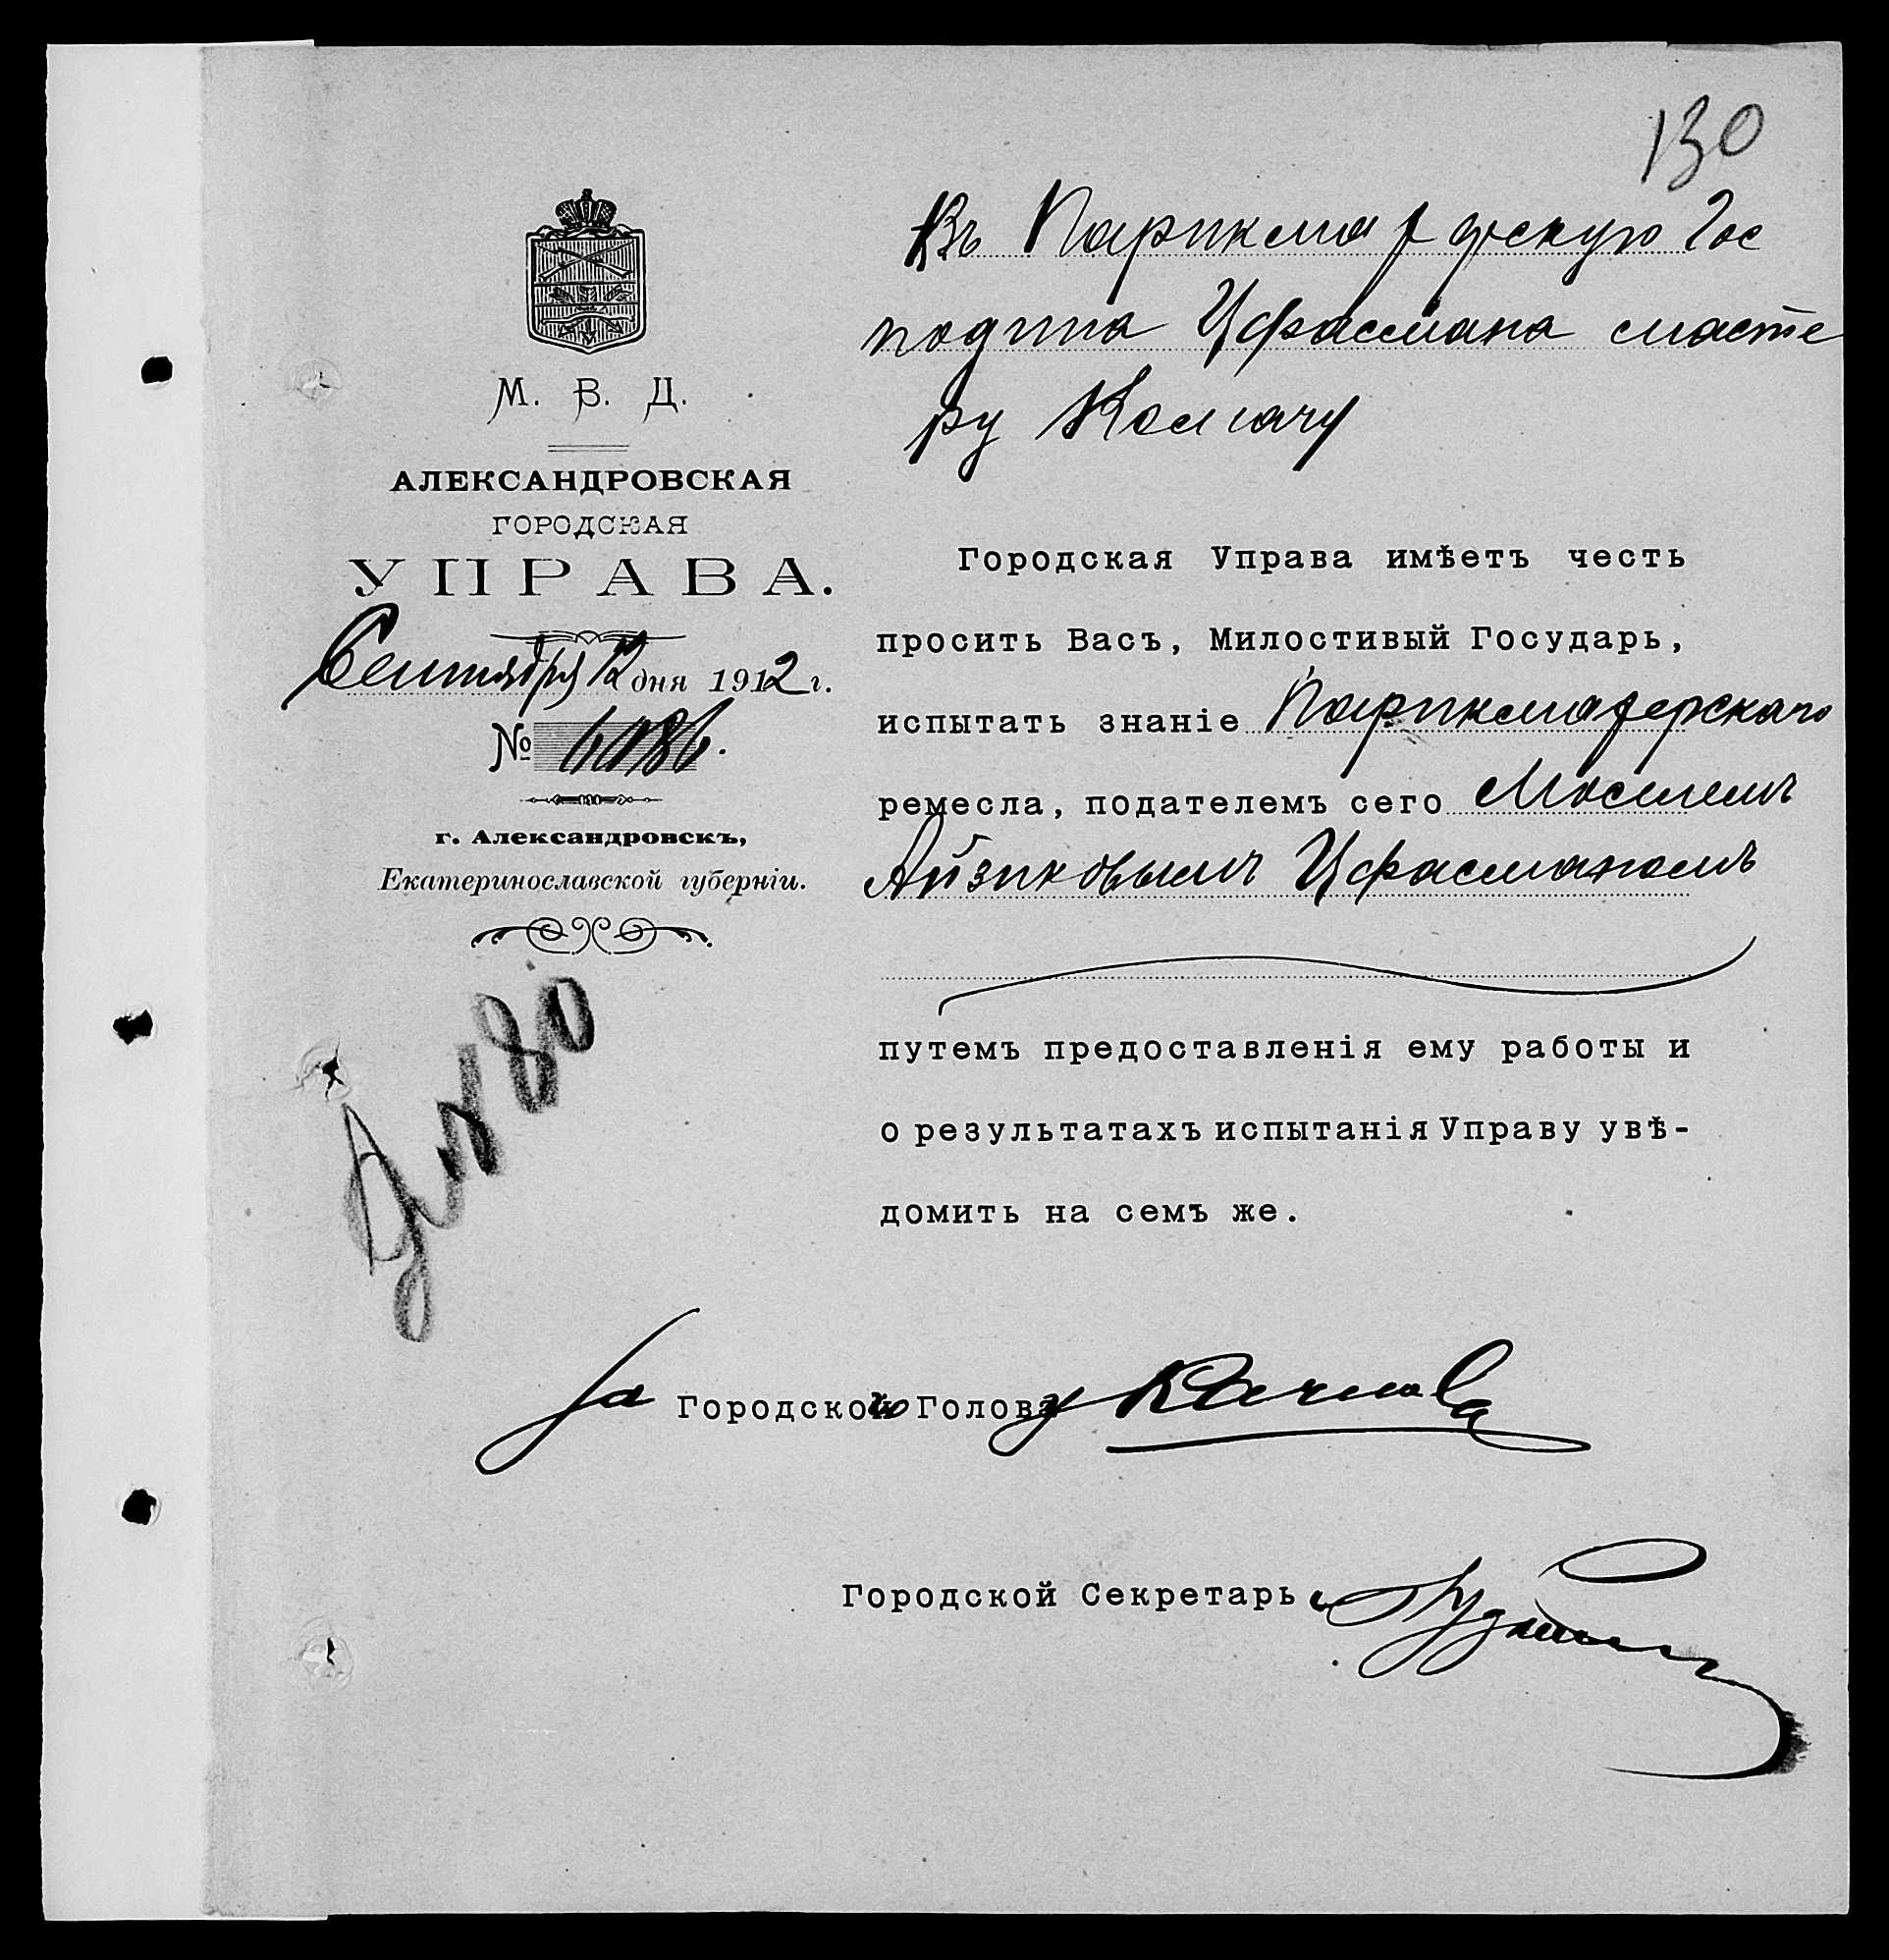 130
М. В. Д.
АЛЕКСАНДРОВСКАЯ
ГОРОДСКАЯ
УПРАВА.
Сентября 12 дня 1912 г.
№ 6086.
г. Александровскъ,
Екатеринославской губерніи.
Въ Парикмахерскую Гос
подина Цфасмана масте
ру
Городская Управа имѣетъ честь
просить Васъ, Милостивый Государь,
испытать знаніе Парикмахерскаго
ремесла, подателемъ сего Мовшемъ
Айзиковымъ Цфасманомъ
путемъ предоставленія ему работы и
о результатахъ испытанія Управу увѣ-
домить на семъ же.
За Городского Голову
Городской Секретарь